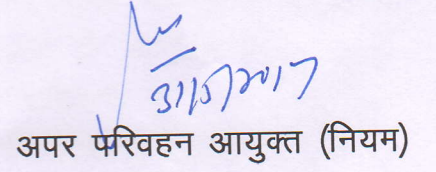 31/5/2017
अपर परिवहन आयुक्त (नियम)